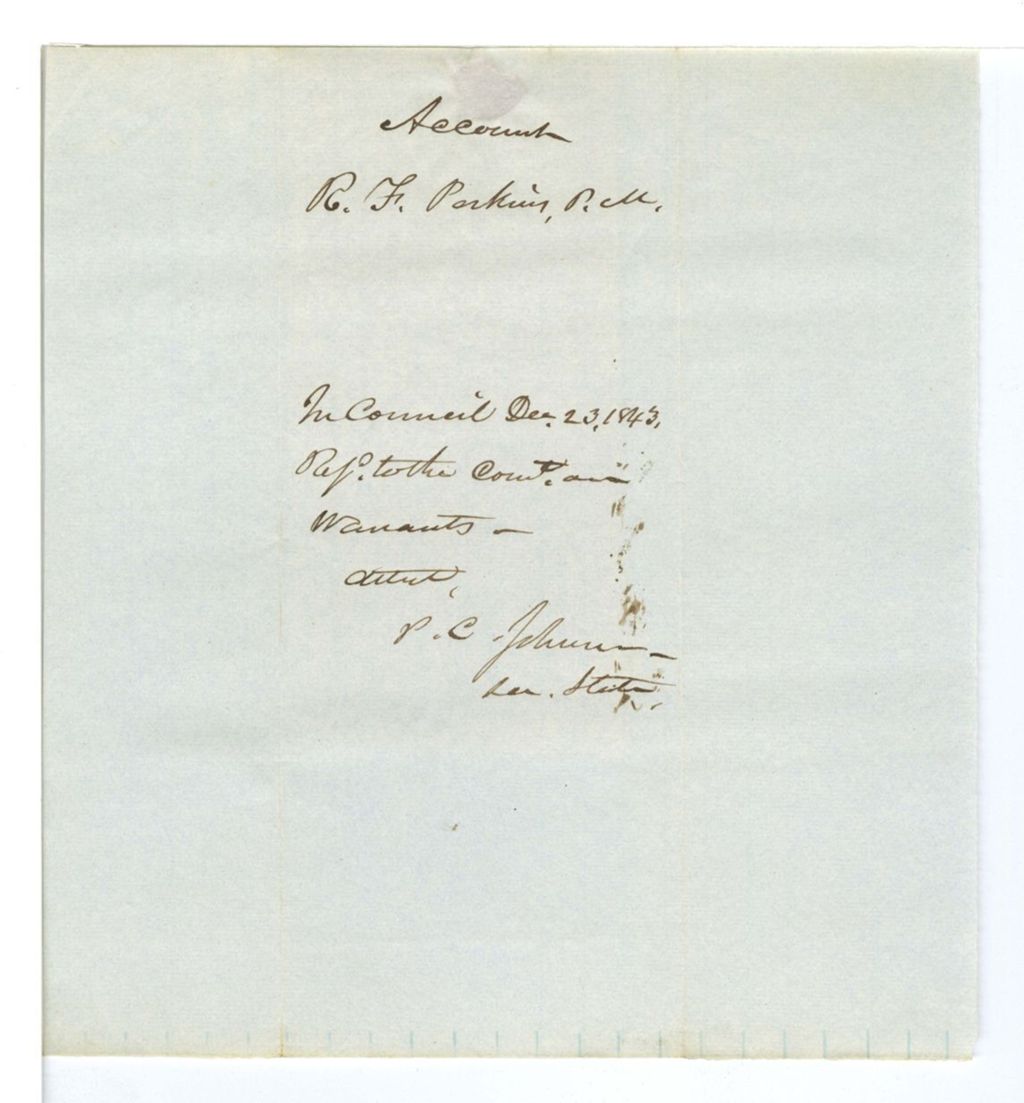 Account
R. F. Perkins, P. M.
In Council Dec. 23, 1843.
Ref.d to the Com.e on
Warrants —
Attest,
P. C. Johnson —
Sec. State.